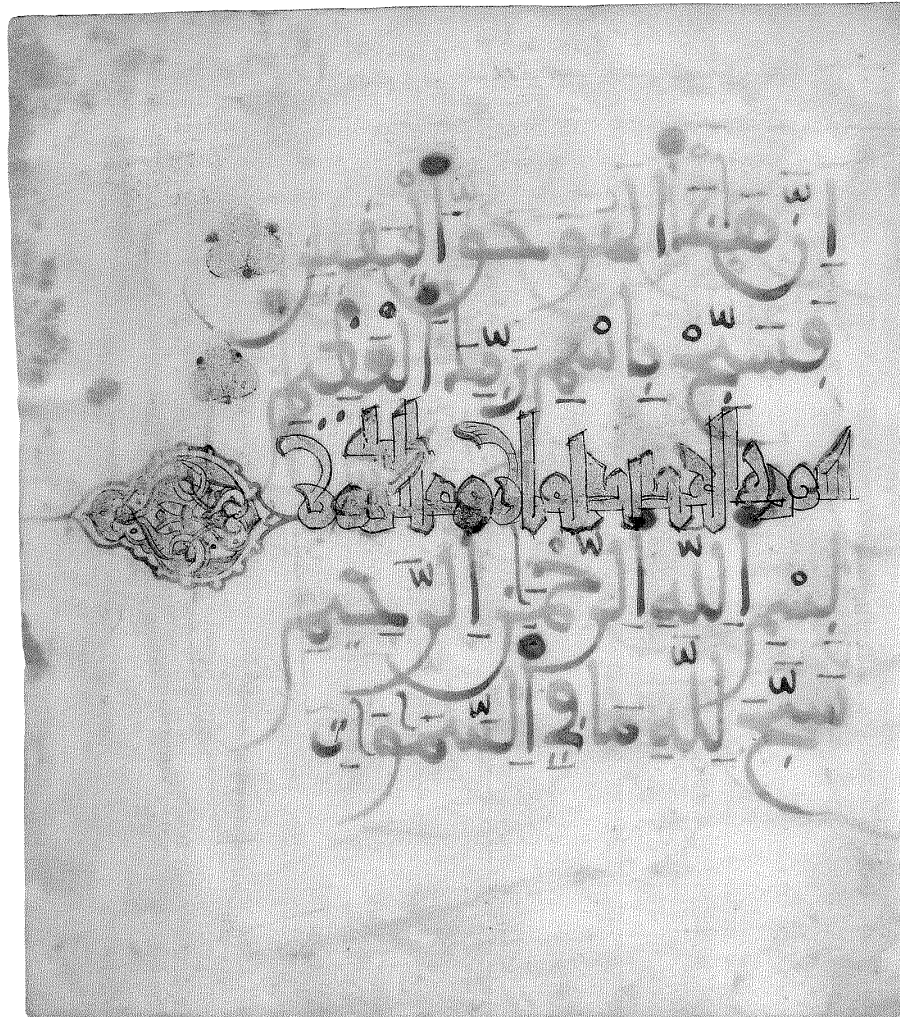 إِنَّ هَٰذَا لَهُوَ حَقُّ الْيَقِينِ
فَسَبِّحْ بِاسْمِ رَبِّكَ الْعَظِيمِ
سورة الحديد
بِسْمِ اللَّهِ الرَّحْمَٰنِ الرَّحِيمِ
سَبَّحَ لِلَّهِ مَا فِي السَّمَٰوَٰتِ